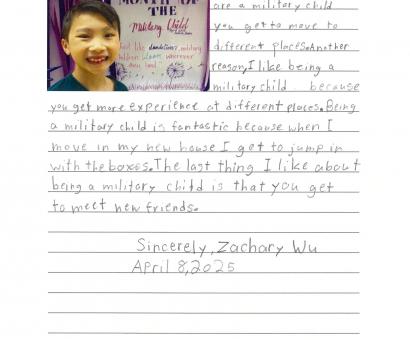 MONTH OF
THE
Military Child
are a military child
you get to move to
different places. Another
reason, I like being a
military child because
you get more experience at different places. Being
a military child is fantastic because when I
move in my new house I get to jump in
with the boxes. The last thing I like about
being a military child is that you get
to meet new friends.
Sincerely, Zachary Wu
April 8, 2025